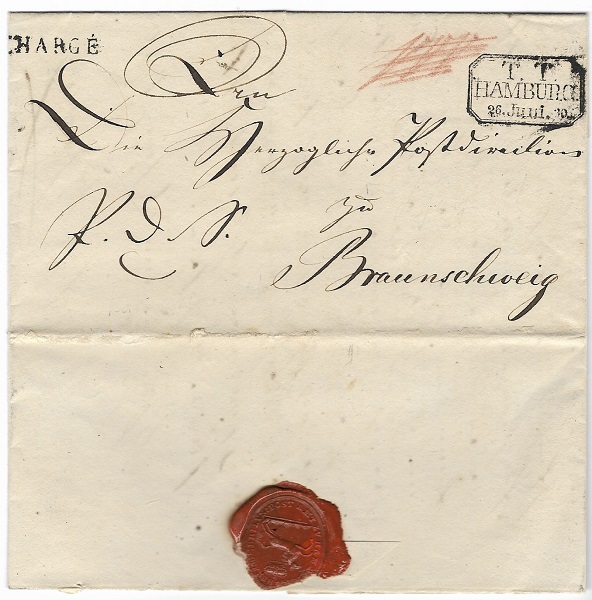 CHARGÉ
T. T.
HAMBURG
26. Juni. 30.
An
Die Herzogliche Postdirection
P. D. S.
zu
Braunschweig